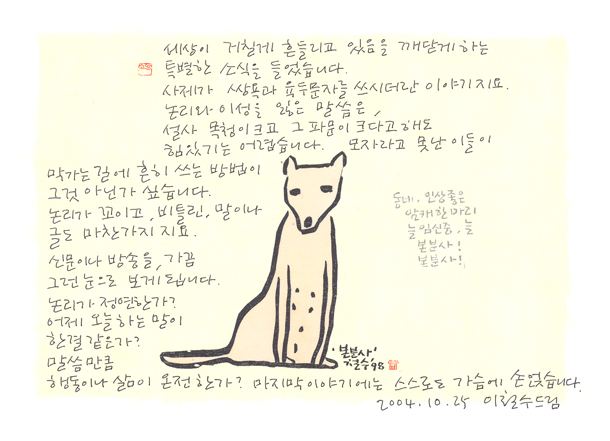 세상이 거칠게 흔들리고 있음을 깨닫게 하는
특별한 소식을 들었습니다.
사제가 쌍욕과 육두문자를 쓰시더란 이야기지요.
논리와 이성을 잃은 말씀은,
설사 목청이 크고 그 파문이 크다고 해도
힘있기는 어렵습니다. 모자라고 못난 이들이
막가는 길에 흔히 쓰는 방법이
그것 아닌가 싶습니다.
논리가 꼬이고, 비틀린, 말이나
글도 마찬가지지요.
신문이나 방송을, 가끔
그런 눈으로 보게 됩니다.
논리가 정연한가?
어제 오늘 하는 말이
한결같은가?
말씀만큼
행동이나 삶이 온전한가? 마지막 이야기에는 스스로도 가슴에 손 얹습니다.
2004.10.25 이철수 드림
동네. 인상좋은
암캐 한마리
늘 임신중, 늘
본분사!
본분사!
'본분사'
철수 '98